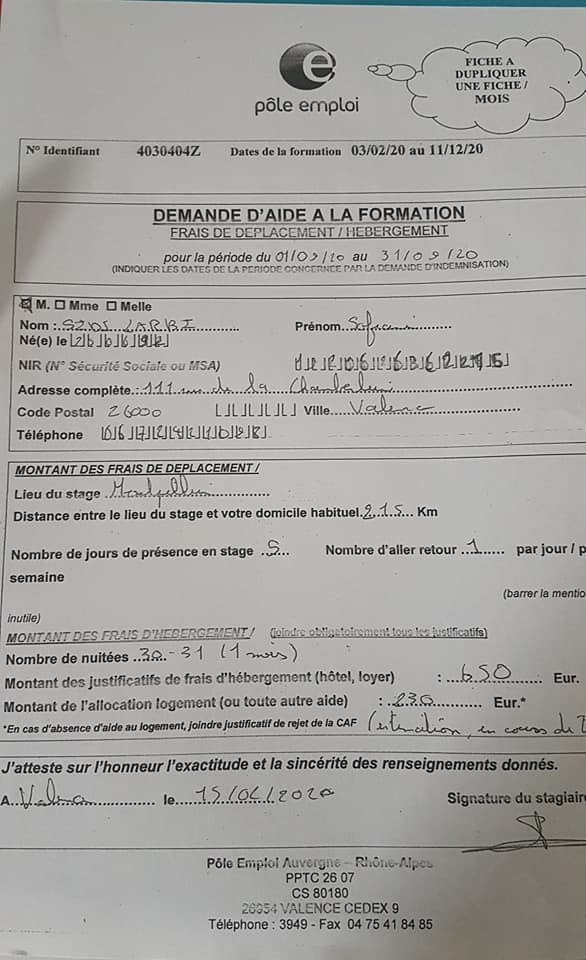 FICHE A
DUPLIQUER
UNE FICHE /
MOIS
pôle emploi
N° Identifiant 4030404Z Dates de la formation 03/02/20 au 11/12/20
DEMANDE D'AIDE A LA FORMATION
FRAIS DE DEPLACEMENT / HEBERGEMENT
pour la période du 01/09/20 au 31/09/20
(INDIQUER LES DATES DE LA PERIODE CONCERNEE PAR LA DEMANDE D'INDEMNISATION)
M. Mme Melle
Nom : LARBI Prénom
Né(e) le
NIR (N° Sécurité Sociale ou MSA)
Adresse complète : 111 rue de la
Code Postal 26000 Ville Valence
Téléphone
MONTANT DES FRAIS DE DEPLACEMENT /
Lieu du stage Montpellier
Distance entre le lieu du stage et votre domicile habituel 215 Km
Nombre de jours de présence en stage 5 Nombre d'aller retour 1 par jour / p
semaine
(barrer la mentio
inutile)
MONTANT DES FRAIS D'HEBERGEMENT / (joindre obligatoirement tous les justificatifs)
Nombre de nuitées 30-31 (1 mois)
Montant des justificatifs de frais d'hébergement (hôtel, loyer) : 650 Eur.
Montant de l'allocation logement (ou toute autre aide) : 230 Eur.*
*En cas d'absence d'aide au logement, joindre justificatif de rejet de la CAF (estimation, en cours de
J'atteste sur l'honneur l'exactitude et la sincérité des renseignements donnés.
A Valence le 15/0 /2020 Signature du stagiaire
Pôle Emploi Auvergne – Rhône-Alpes
PPTC 26 07
CS 80180
26954 VALENCE CEDEX 9
Téléphone : 3949 - Fax 04 75 41 84 85